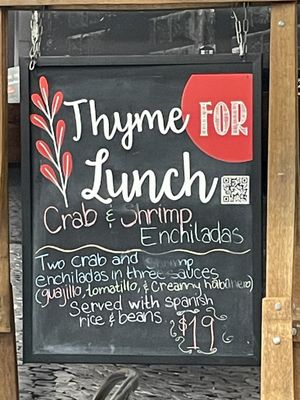 Thyme FOR
Lunch
Crab & Shrimp
Enchiladas
Two crab and Shrimp
enchiladas in three sauces
(guajillo, tomatillo, & creamy habanero)
Served with spanish
rice & beans
$19